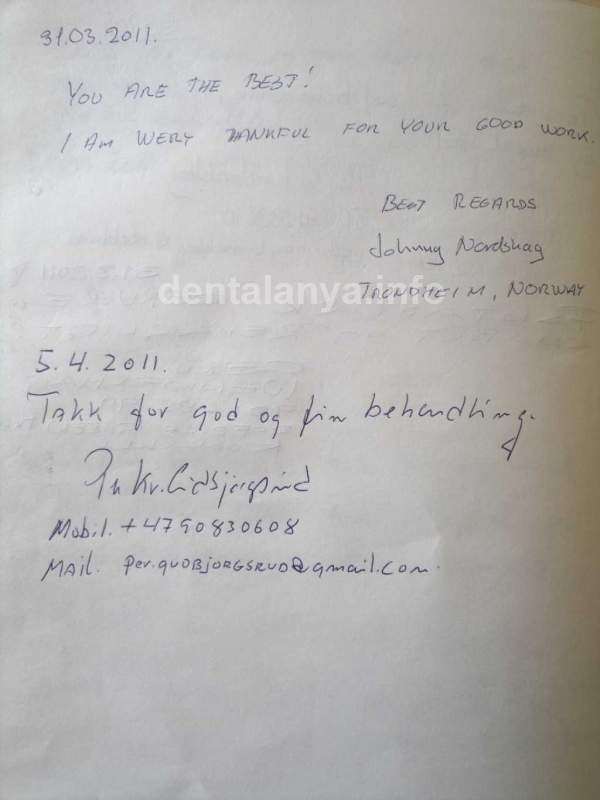 31.03.2011.
YOU ARE THE BEST!
I AM WERY THANKFUL FOR YOUR GOOD WORK.
BEST REGARDS
Johnny Nordskag
dentalanya.info
TRONDHEIM, NORWAY
5.4.2011.
Takk for god og fin behandling.
Kv.
Mobil. +4790830608
MAIL. per.gudbjorgsrud@gmail.com.